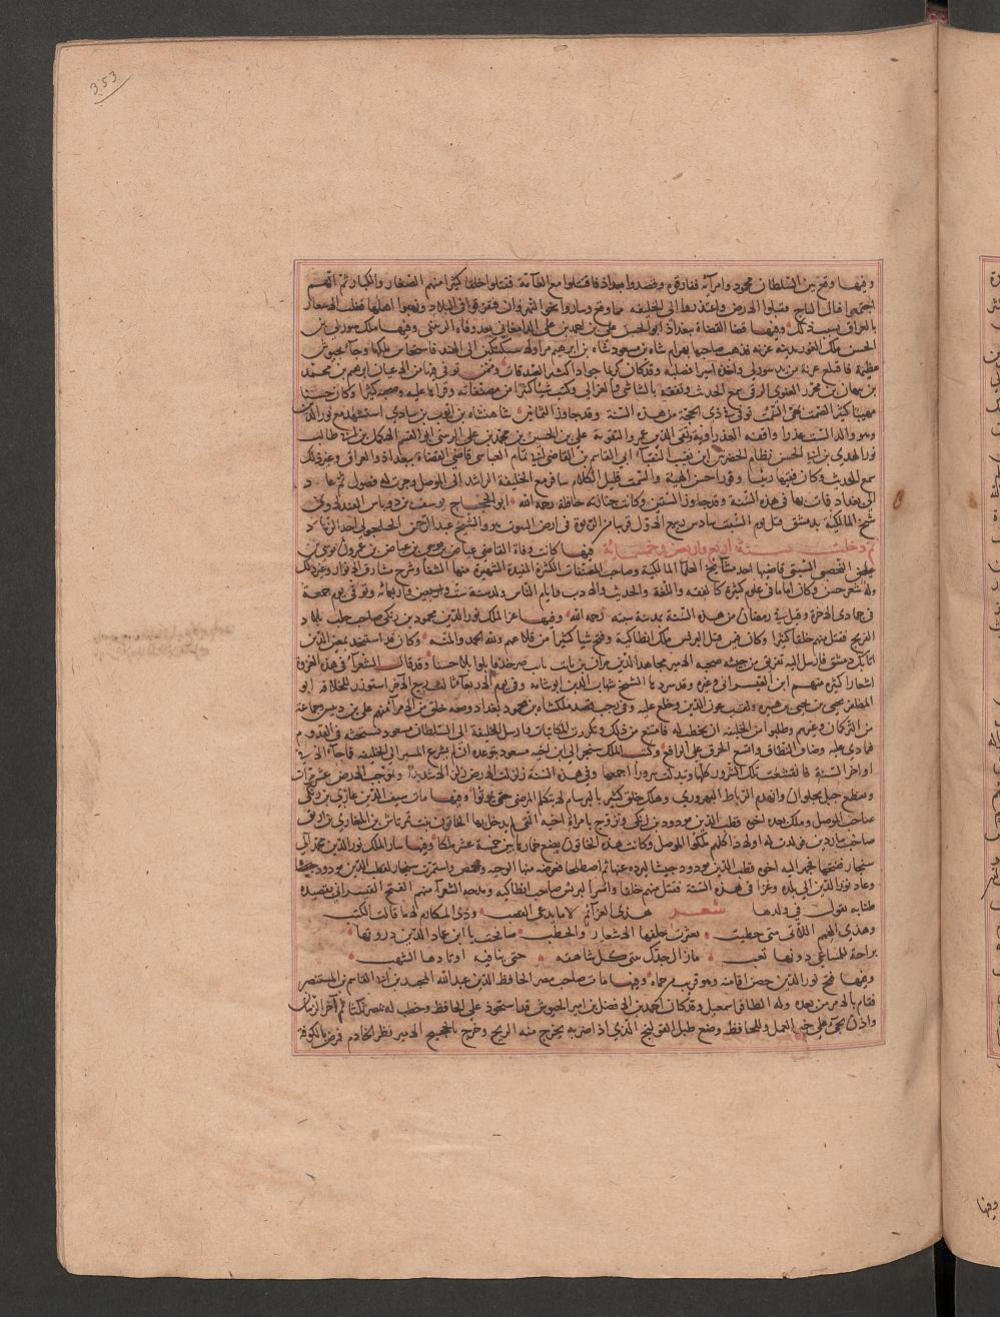 353
وفيها وقع بين السلطان محمود وامرآئه ففارقوه وقصدوا بغداد فاقتتلوا مع العآمة فقتلوا خلقا كثيرا منهم الصغار والكبار ثم انهم
اجتمعوا قبال التاج وقبلوا الارض واعتذروا الى الخليفه مما وقع وساروا نحو النهروان فتفرقوا في البلاد ونهبوا اهلها فغلت الاسعار
بالعراق بسبب ذلك وفيها قضا القضاة ببغداد ابو الحسن علي بن احمد بن علي الدامغاني بعد وفاة الزينبي وفيها ملك سوري بن
الحسن ملك الغور مدينه غزنه فذهب صاحبها بهرام شاه بن مسعود شاه بن ابرهيم من اولاد سبكتكين الى الهند فاستجاش ملكها وجآء بجيوش
عظيمة فاقتلع غزنة من يد سوري واخذه اسيرا فصلبه وقد كان كريما جوادا كثير الصدقات وممن توفي فيها من الاعيان ابرهيم بن محمد
بن نبهان بن محرز الغنوي الرقي سمع الحديث وتفقه بالشاشي والغزالي وكتب شيئا كثيرا من مصنفاته وقراه عليه وصحبه كثيرا وكان حسنا
مهيبا كثير الصمت توفي في ذي الحجة من هذه السنة وقد جاوز الثمانين شاهنشاه بن ايوب بن شادي استشهد مع نور الدين
وهو والد الست عذرا واقفه العذراويه وتقي الدين عمر واقف التقوية علي بن الحسين بن محمد بن علي الزينبي ابو القسم الاكمل بن ابي طالب
نور الهدي بن ابي الحسن نظام الحضرتين ابن نقيب النقبآء ابي القاسم بن القاضي ابي تمام العباسي قاضي القضاة ببغداد والعراق وغير ذلك
سمع الحديث وكان فقيها رئيسا وقورا حسن الهيئة والسمت قليل الكلام سافر مع الخليفة الراشد الى الموصل وجرت له فصول ثم عاد
الى بغداد فمات بها في هذه السنة وقد جاوز الستين وكانت جنازته حافلة رحمه الله ابو الحجاج يوسف بن دوباس الفندلاوي
شيخ المالكية بدمشق قتل يوم السبت سادس ربيع الاول قريبا من الربوة في ارض النيرب هو والشيخ عبد الرحمن الحلحولي احد الزهاد
ثم دخلت سنة اربع واربعين وخمسمائة فيها كانت وفاة القاضي عياض بن موسى بن عياض بن عمرون بن موسى بن
عياض اليحصبي السبتي قاضيها احد مشآيخ العلمآ المالكية وصاحب المصنفات الكثيرة المفيدة الشهيرة منها الشفا وشرح مشارق الانوار وغير ذلك
وله شعر حسن وكان اماما في علوم كثيرة كالفقه واللغة والحديث والادب وايام الناس ولد سنة ست وسبعين واربعمائة وتوفي يوم جمعة
في جمادي الاخرة وقيل في رمضان من هذه السنة بمدينة سبته رحمه الله وفيها غزا الملك نور الدين محمود بن زنكي صاحب حلب بلاد
الفرنج فقتل منهم خلقا كثيرا وكان فيمن قتل البرنس ملك انطاكية وفتح شيئا كثيرا من قلاعهم ولله الحمد والمنه وكان قد استنجد بمعين الدين
اتابك دمشق فارسل اليه بفريق من جيشه صحبه الامير مجاهد الدين بزان بن مامين نايب صرخد فابلوا بلاء حسنا وقد قالت الشعرآء في هذه الغزوة
اشعارا كثيرة منهم ابن القيسراني وغيره وقد سردها الشيخ شهاب الدين ابو شامة وفي يوم الاربعآء ثالث ربيع الاخر استوزر للخلافة ابو
المظفر يحيى بن محمد بن هبيره ولقب عون الدين وخلع عليه وفي رجب قصد ملكشاه بن محمود بغداد ومعه خلق من الامرآء منهم علي بن دبيس وجماعة
من التركمان وغيرهم وطلبوا من الخليفه ان يخطب له فامتنع من ذلك وتكررت المكاتبات وارسل الخليفة الى السلطان مسعود يستحثه في القدوم
فتمادى عليه وضاق النطاق واتسع الخرق على الراقع وكتب الملك سنجر الى ابن اخيه مسعود يتوعده ان لم يسرع المسير الى الخليفه فما جآء الا في
اواخر السنة فانقشعت تلك الشرور كلها وتبدلت سرورا اجمعها وفي هذه السنة زلزلت الارض زلزالا شديدا وتموجت الارض عشر مرات
وتقطع جبل بحلوان وانهدم الرباط البهروزي وهلك خلق كثير بالبرسام لا يتكلم المرضى حتى يموتوا وفيها مات سيف الدين غازي بن زنكي
صاحب الموصل وملك بعده اخوه قطب الدين مودود بن زنكي وتزوج بامرأة اخيه التي لم يدخل بها الخاتون بنت تمرتاش بن ايلغازي بن ارتق
صاحب ماردين فولدت له اولادا كلهم ملكوا الموصل وكانت هذه الخاتون يضع خمارها بين خمسة عشر ملكا وفيها سار الملك نور الدين محمد الى
سنجار ففتحها فجهز اليه اخوه قطب الدين مودود جيشا ليرده عنها ثم اصطلحا فعوضه منها الرحبه وحمص واستمرت سنجار لقطب الدين مودود
وعاد نور الدين الى بلده وغزا في هذه السنة فقتل منهم خلقا واسر البرنس صاحب انطاكيه ومدحه الشعرآء منهم الفتح القيسراني بقصيده
طنانه يقول في اولها شعر هذي العزآئم لا ما يدعى القضب وذي المكارم لا ما قالت الكتب
وهذي الهمم اللاتي متى خطبت تعثرت خلفها الاشعار والخطب صافحت يا ابن عماد الدين ذروتها
براحة للمساعي دونها تعب مازال جدك يبني كل شاهقه حتى بنا قبه اوتادها الشهب
وفيها فتح نور الدين حصن افاميه وهو قريب من حماه وفيها مات صاحب مصر الحافظ الدين عبد الله المجيد بن ابي القاسم بن المستنصر
فقام بالامر من بعده ولده الظافر اسمعيل وقد كان احمد بن الافضل بن امير الجيوش قد استحوذ على الحافظ وخطب له بمصر ثلثا ثم آخر الزمان
واذن بحي على خير العمل وللحافظ وضع طبل القولنج الذي اذا ضربه يخرج منه الريح وخرج بالحجيج الامير نظر الخادم فمرض بالكوفة
وفيها